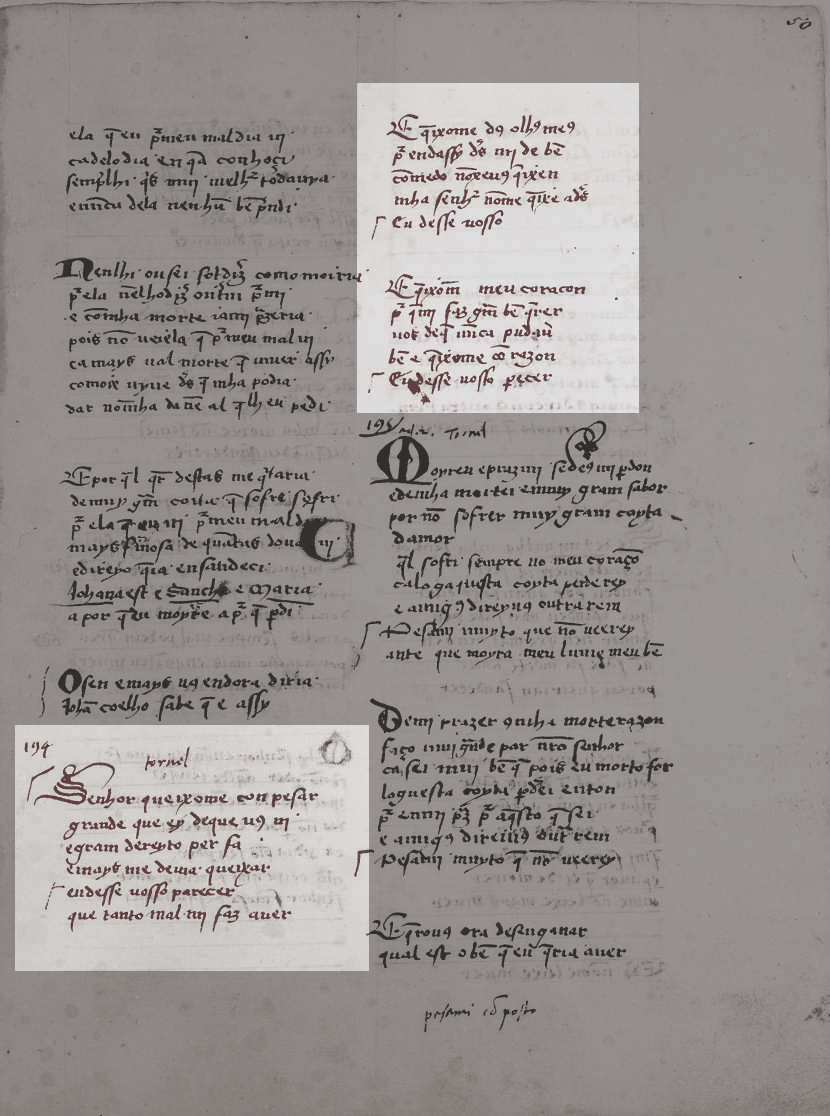 50
ela q̃ eu p̃ meu mal dia ui
cadelo dia en q̃ a conhoçi
e nũca dela nenhũ bẽ p̃ndi
Nenlhi ousei sol diz̃ como moiria
p̃ ela nẽlho diz̃ outrẽ p̃ mi
e cõ mha morte ia mi p̃zeria
pois nõ ueiela q̃ p̃ meu mal ui
ca mays ual morte q̃ uiuer assy
como ie uyue d̃s q̃ mha podia
dar nõ mha da nẽ al q̃ lheu pedi
E por q̃l q̃r destas me q̃taria
de muy g̃m coita q̃ sofre sofri
p̃ ela q̃ eu ui p̃ meu mal dia
mays fremosa de quãtas donas ui
e direyo q̃ ia ensandeci
Iohana est e Sancha e Maria
a por q̃ eu moyre a p̃ q̃ p̃di
Osen e mays u9 endora diria
Johã coelho sabe q̃ e assy
194
tornel
Senhor queixome con pesar
grande que ey deque u9 ui
e gram dereyto per fa
e mays me deuia queixar
endesse uosso parecer
que tanto mal mi faz auer
E q̃ixome d9 olh9 me9
p̃ endassy d̃s mi de bẽ
cõ medo nõ xeu9 q̃ixen
mha senhr̃ nõme q̃ixe a d̃s
Eu desse uosso
E q̃ixom̃ meu coraçon
p̃ q̃ mi faz g̃m bẽ q̃rer
uos de q̃ nũca pud auer
bẽ e q̃ixome cõ razon
Eu desse uosso p̱ecer
195
Tornel
Moyren e praz mi se de9 mi p̱don
e de mha mort ei en muy gram sabor
por nõ sofrer muy gram coyta
damor
q̃l sofri sempre no meu coraçõ
ca log aquesta coyta perderey
e amig9 direyu9 outra rem
Pesami muyto que nõ ueerey
ante que moyra meu lume meu bẽ
Demi prazer 9 mha morte razon
faço mui g̃nde par nr̃o Senhor
ca sei mui bẽ q̃ pois eu morto for
loguesta coyta p̱derei enton
p̃ en mi p̃z p̃ aq̃sto q̃ sei
e amig9 direiu9 out̃ rem
Pesami muyto q̃ nõ ueerey
E q̃rou9 ora desenganar
qual est o bẽ q̃ eu q̃ria auer
pesami cõ posto